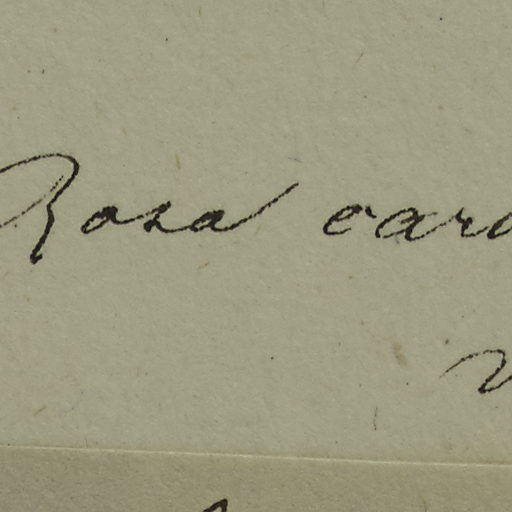 Rosa caro